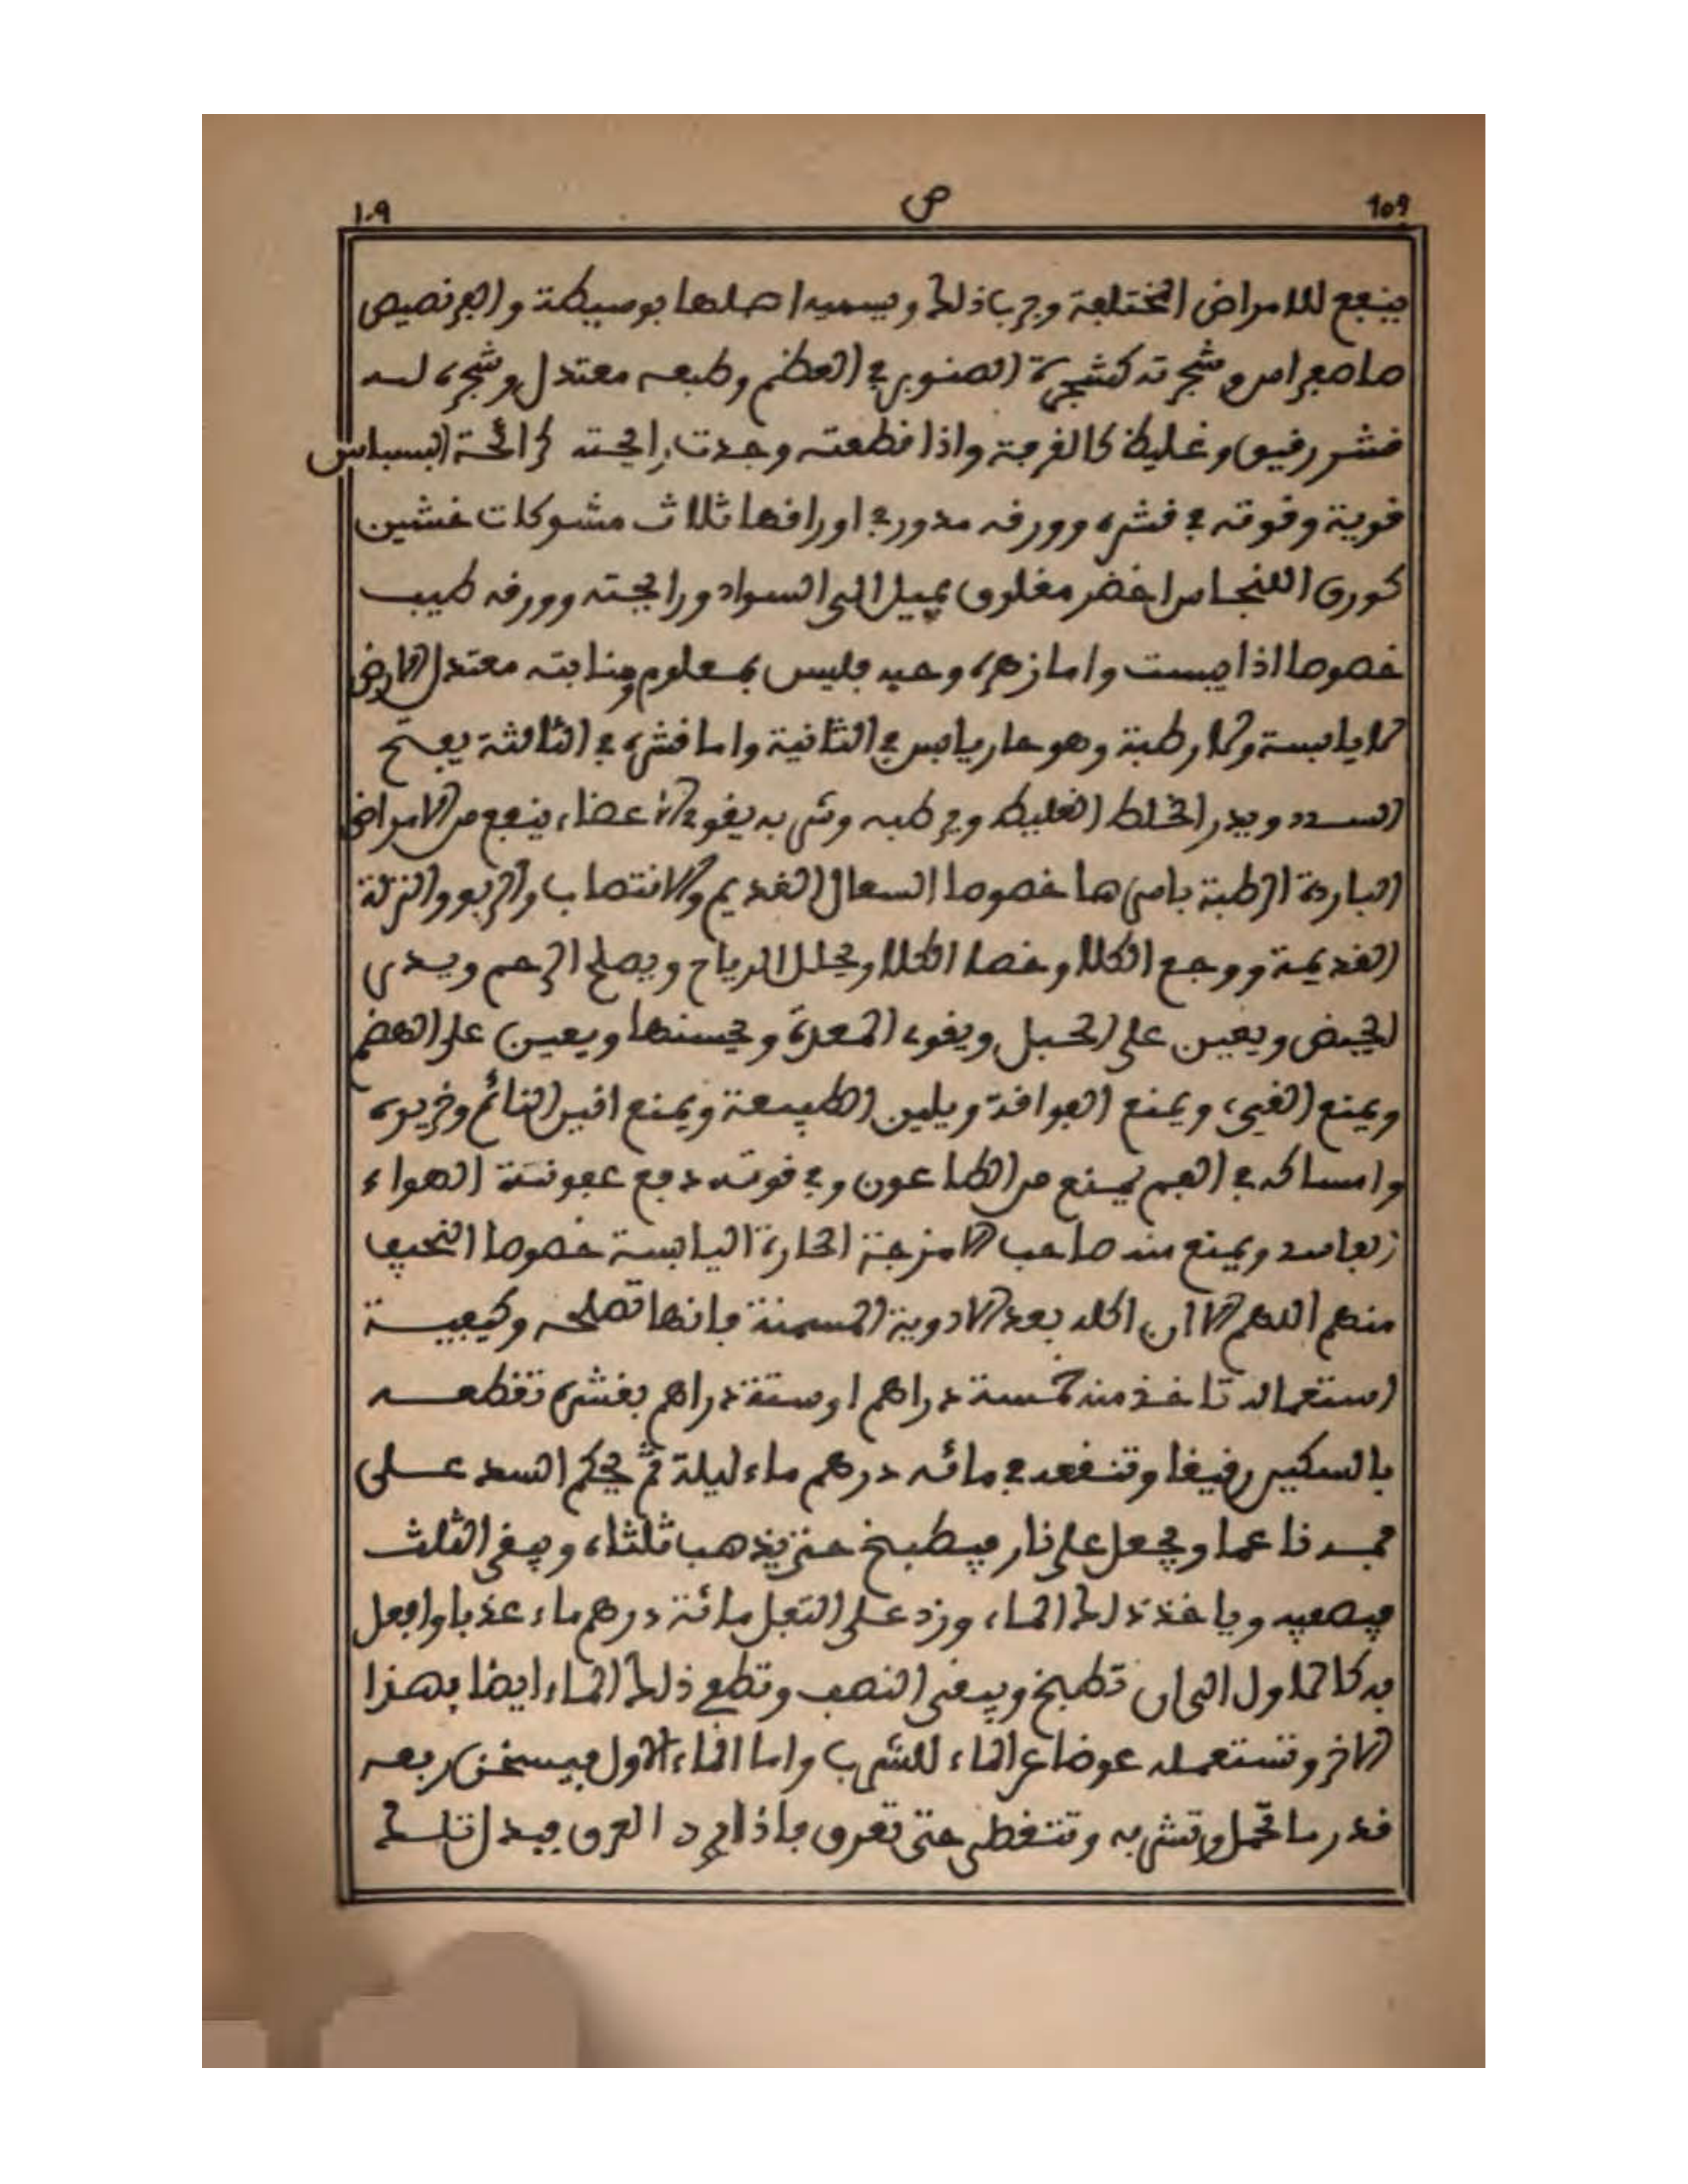 109 ص ١٠٩
ينفع للامراض المختلفة وجرب ذلك ويسميه اهلها بوسيطة والبرنصيص
شجرته كشجرة الصنوبر في العظم وطبعه معتدل وشجره له
قشر رقيق وغليظ كالقرفة واذا قطعته وجدت رايحته كرائحة البسباس
قوية وقوته في قشره وورقه مدور في اوراقها ثلاث مشوكات خشين
كورق اخضر مغلوق يميل الى السواد ورايحته وورقه طيب
خصوصا اذا يبست واما زهره وحبه فليس بمعلوم ومنابته معتدل الارض
لا يابسة ولا رطبة وهو حار يابس في الثانية واما قشره في الثالثة يفتح
السدد ويدر الخلط الغليظ ويرطبه وشربه يقوي الاعضاء ينفع من الامراض
الباردة الرطبة باسرها خصوصا السعال القديم والانتصاب والربو والنزلة
القديمة ووجع الكلا وحصا الكلا ويحلل الرياح ويصلح الرحم ويدر
الحيض ويعين على الحبل ويقوي المعدة ويحسنها ويعين على الهضم
ويمنع القيء ويمنع الفواقة ويلين الطبيعة ويمنع انين النائم وخريره
وامساكه في الفم يمنع من الطاعون وفي قوته دفع عفونة الهواء
الفاسد ويمنع منه صاحب الامزجة الحارة اليابسة خصوصا النحيف
منهم اللهم الا ان اكله بعد الادوية المسمنة فانها تصلحه وكيفية
استعماله تاخذ منه خمسة دراهم او ستة دراهم بقشره تقطعه
بالسكين رقيقا وتنقعه في مائه درهم ماء ليلة ثم يحكم السد على
ناعما ويجعل على نار فيطبخ حتى يذهب ثلثاه ويبقى الثلث
فيصفيه وياخذ ذلك الماء وزد على الثفل مائة درهم ماء عذبا وافعل
به كالاول الى ان تطبخ ويبقى النصف وتطفي ذلك الماء ايضا بهذا
الاخر وتستعمله عوضا عن الماء للشرب واما الماء الاول فيسخن ربعه
قدر ما تحمل وتشربه وتتغطى حتى تعرق فاذا برد العرق فيدل تلك